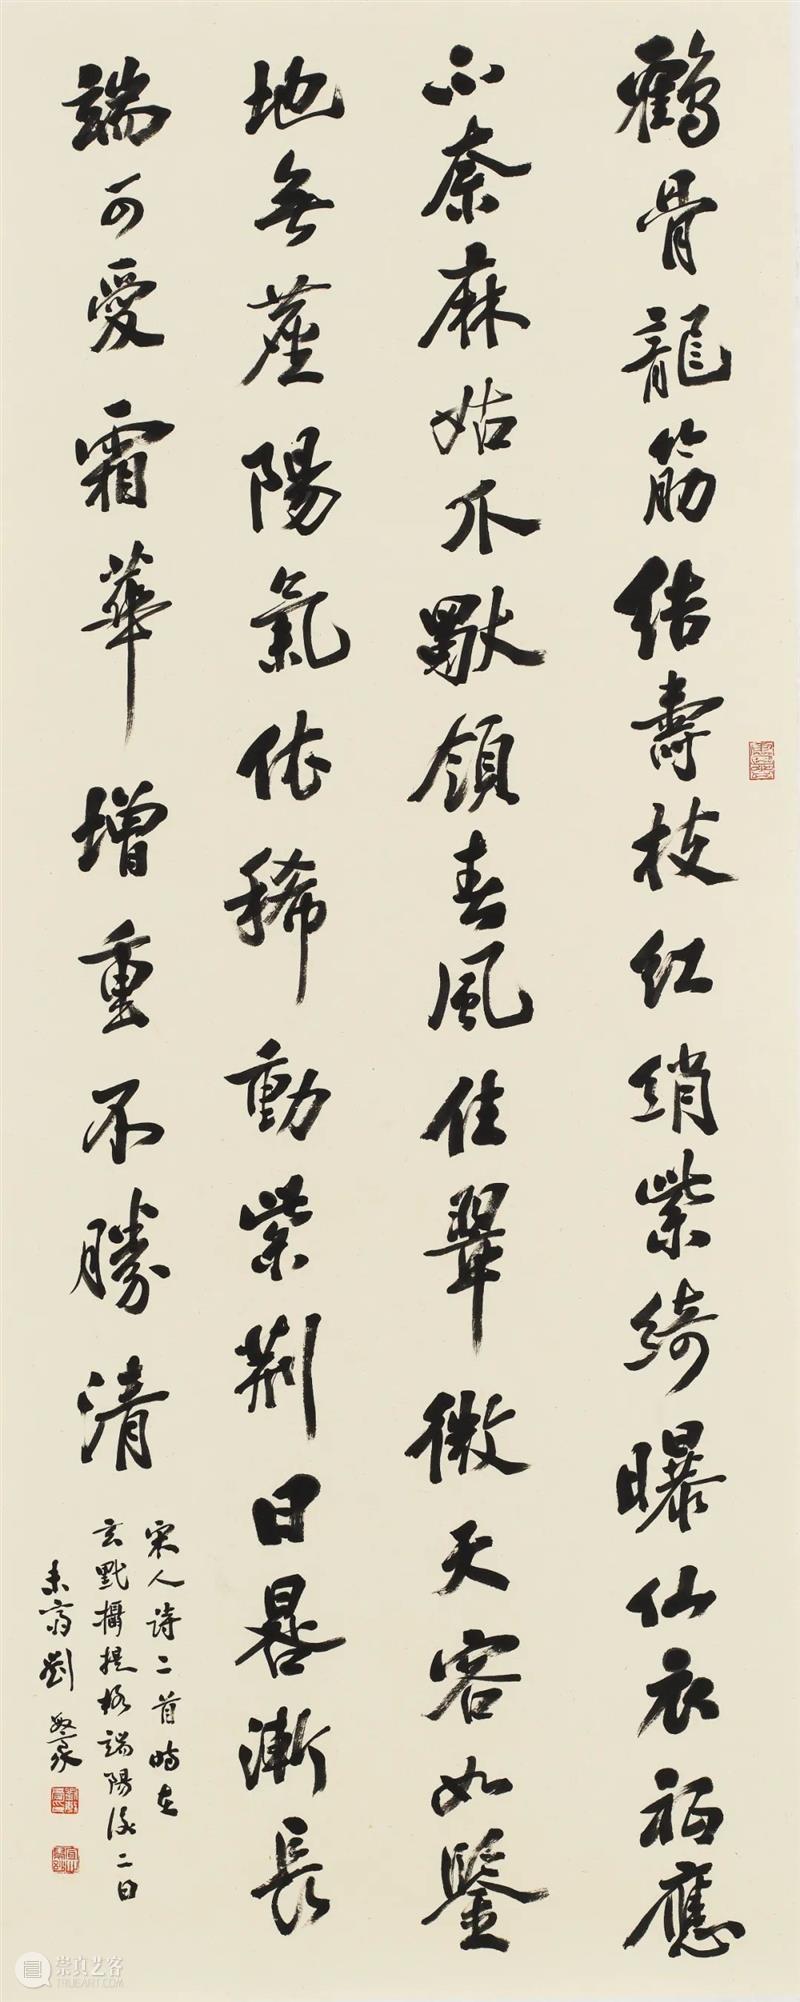 鶴骨龍筋結壽枝紅綃紫綺曝仙衣祗應
不奈麻姑爪默領春風住翠微天容如鑒
地無塵陽氣依稀動紫荊日晷漸長
端可愛霜華增重不勝清
宋人詩二首時在
玄黓攝提格端陽後二日
未齋劉
崇真艺客
TRUEART.COM